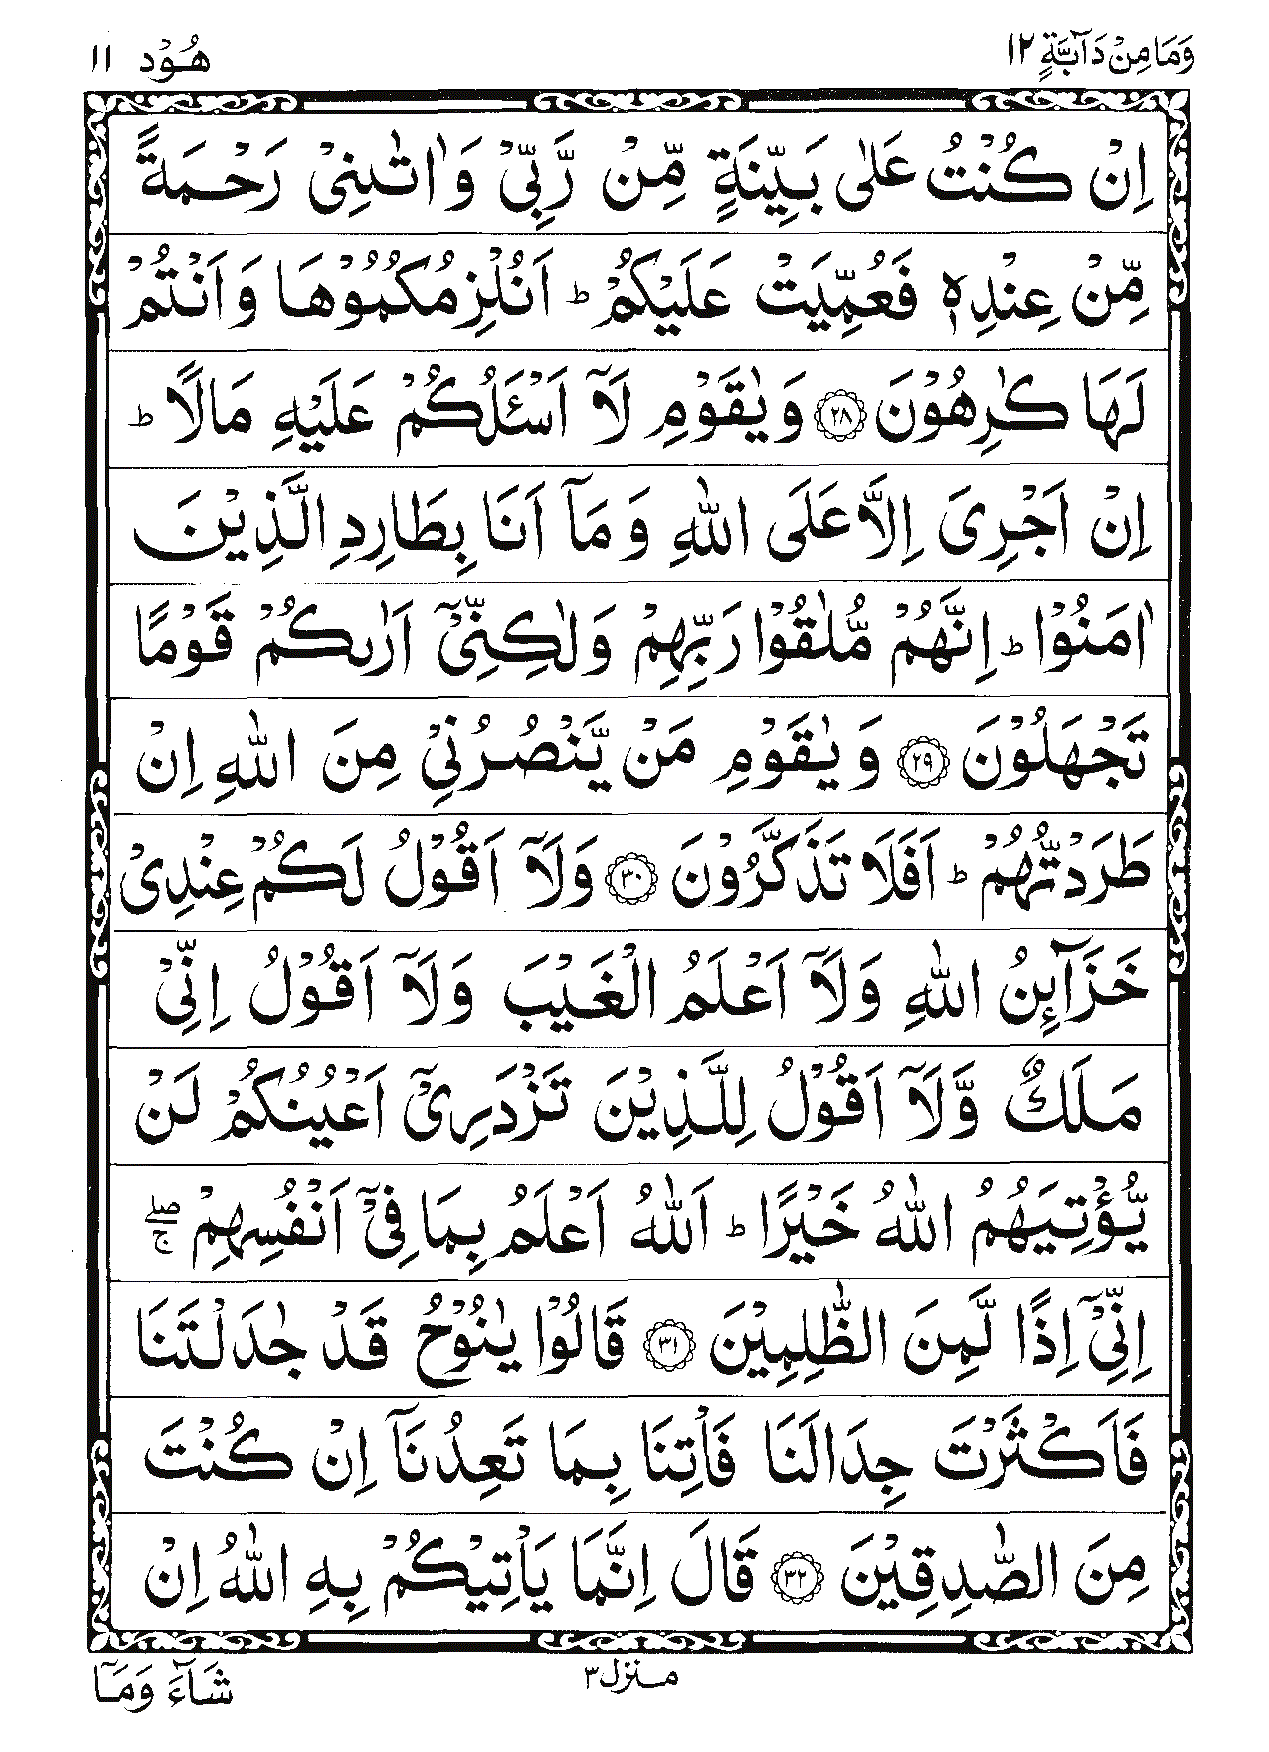 وَمَا مِنْ دَآبَّةٍ ١٢
هُوْد ١١
اِنْ كُنْتُ عَلٰى بَيِّنَةٍ مِّنْ رَّبِّيْ وَاٰتٰىنِيْ رَحْمَةً
مِّنْ عِنْدِهٖ فَعُمِّيَتْ عَلَيْكُمْ ؕ اَنُلْزِمُكُمُوْهَا وَاَنْتُمْ
لَهَا كٰرِهُوْنَ ﴿٢٨﴾ وَيٰقَوْمِ لَاۤ اَسْـَٔلُكُمْ عَلَيْهِ مَالًا ؕ
اِنْ اَجْرِىَ اِلَّا عَلَى اللّٰهِ وَمَاۤ اَنَا بِطَارِدِ الَّذِيْنَ
اٰمَنُوْا ؕ اِنَّهُمْ مُّلٰقُوْا رَبِّهِمْ وَلٰكِنِّيْۤ اَرٰىكُمْ قَوْمًا
تَجْهَلُوْنَ ﴿٢٩﴾ وَيٰقَوْمِ مَنْ يَّنْصُرُنِيْ مِنَ اللّٰهِ اِنْ
طَرَدْتُّهُمْ ؕ اَفَلَا تَذَكَّرُوْنَ ﴿٣٠﴾ وَلَاۤ اَقُوْلُ لَكُمْ عِنْدِىْ
خَزَآئِنُ اللّٰهِ وَلَاۤ اَعْلَمُ الْغَيْبَ وَلَاۤ اَقُوْلُ اِنِّيْ
مَلَكٌ وَّلَاۤ اَقُوْلُ لِلَّذِيْنَ تَزْدَرِىْۤ اَعْيُنُكُمْ لَنْ
يُّؤْتِيَهُمُ اللّٰهُ خَيْرًا ؕ اَللّٰهُ اَعْلَمُ بِمَا فِيْۤ اَنْفُسِهِمْ ۖۚ
اِنِّيْۤ اِذًا لَّمِنَ الظّٰلِمِيْنَ ﴿٣١﴾ قَالُوْا يٰنُوْحُ قَدْ جٰدَلْتَنَا
فَاَكْثَرْتَ جِدَالَنَا فَاْتِنَا بِمَا تَعِدُنَاۤ اِنْ كُنْتَ
مِنَ الصّٰدِقِيْنَ ﴿٣٢﴾ قَالَ اِنَّمَا يَاْتِيْكُمْ بِهِ اللّٰهُ اِنْ
منزل ٣
شَآءَ وَمَاۤ